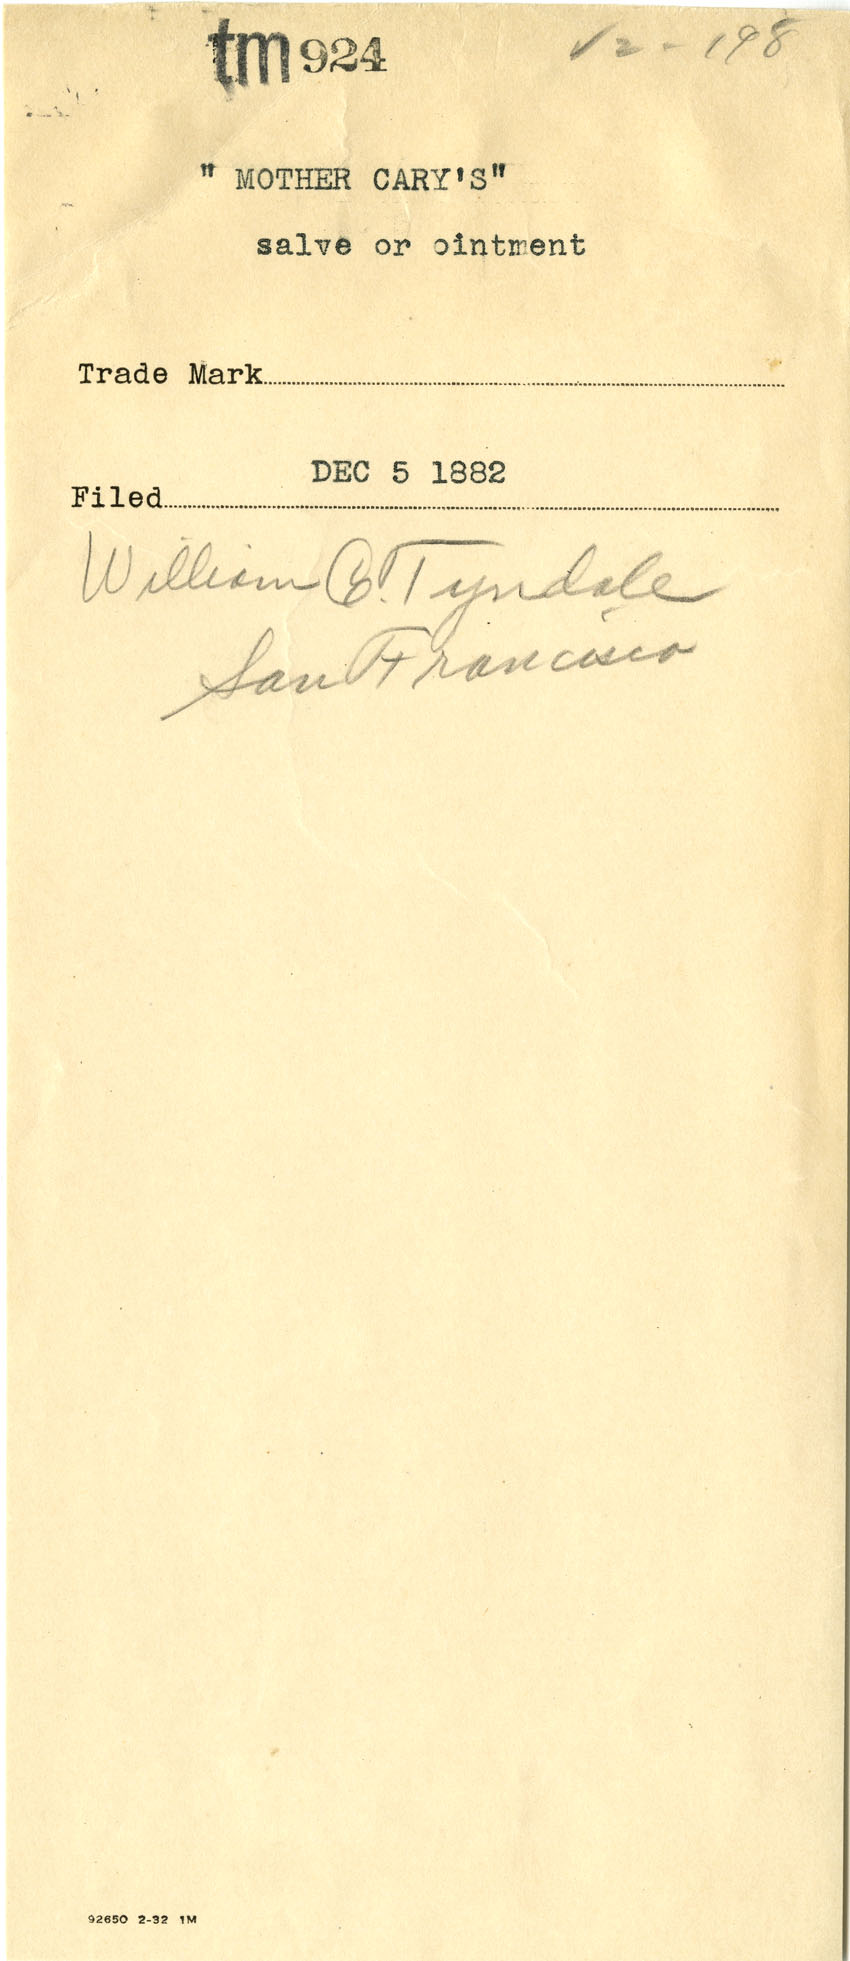 tm 924
√2-198
" MOTHER CARY'S"
salve or ointment
Trade Mark
DEC 5 1882
Filed
William E. Tyndale
San Francisco
92650 2-32 1M